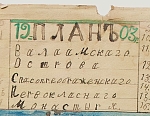 19 ПЛАНЪ 03.
Валаамскаго
Острова
Спасопреображенскаго
Первокласнаго
Монастыря.